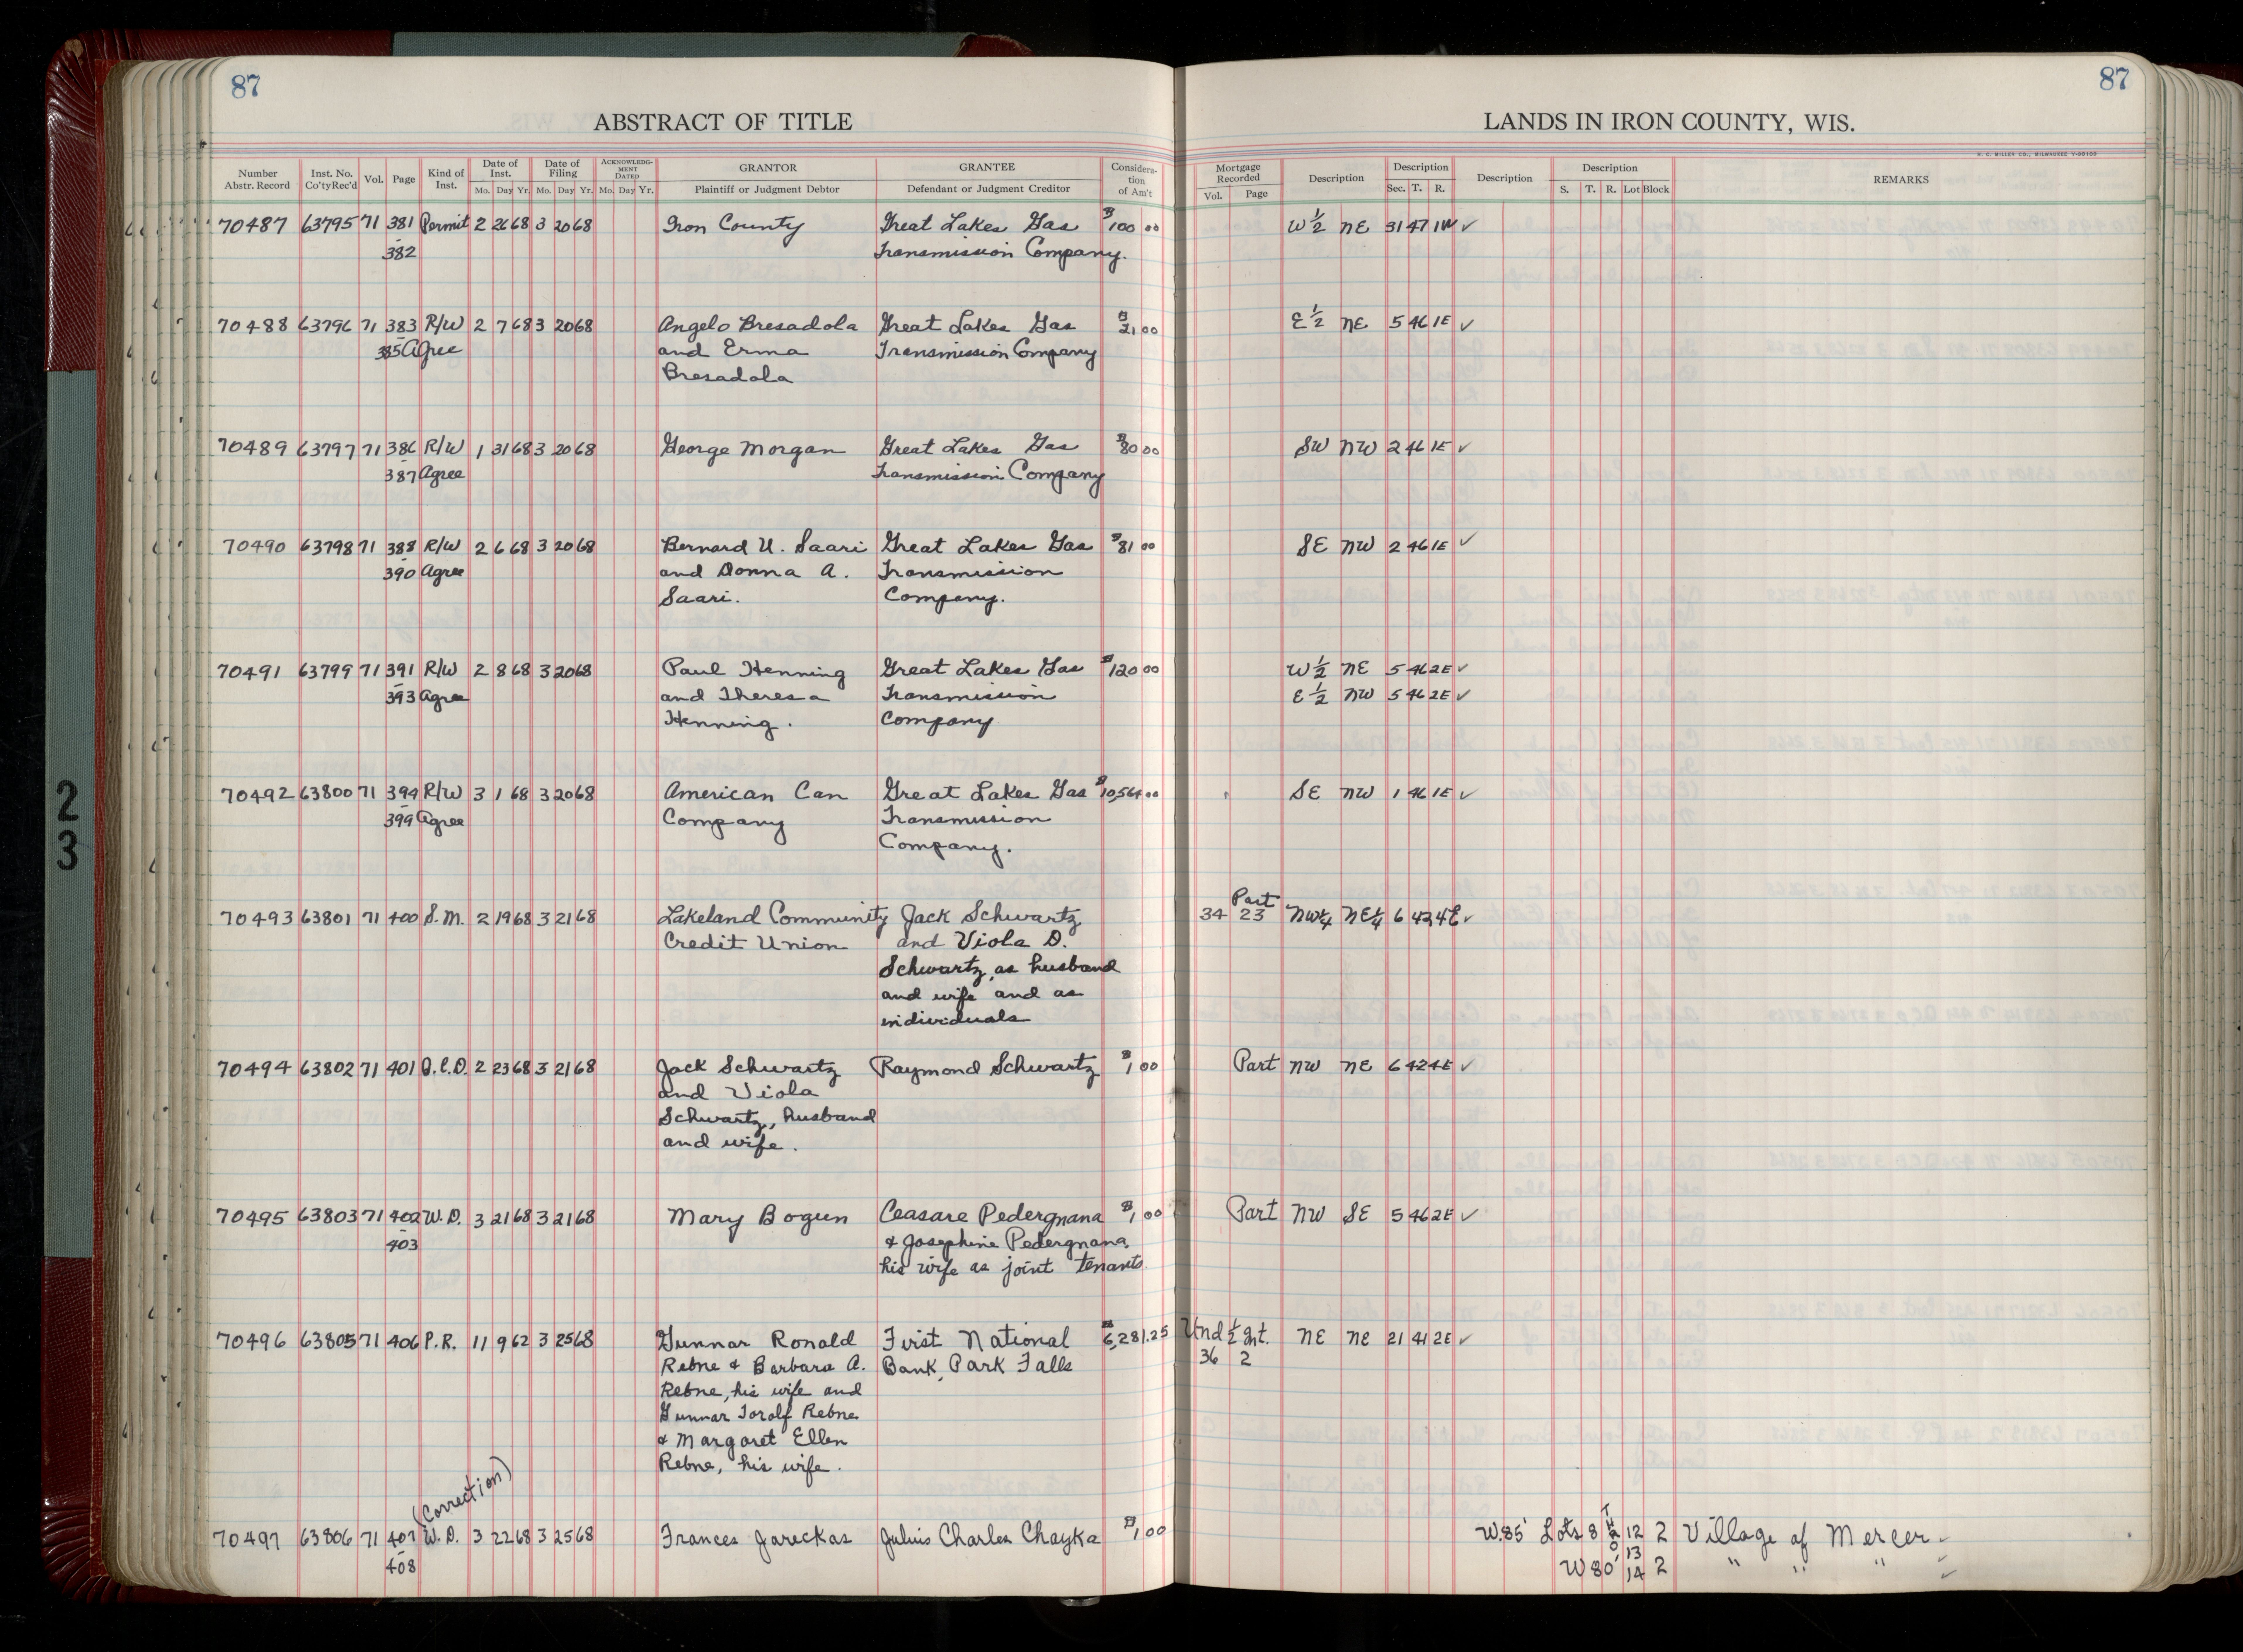 87
87
ABSTRACT OF TITLE
LANDS IN IRON COUNTY, WIS.
H. C. MILLER CO., MILWAUKEE V-90109
Number Abstr. Record Inst. No. Co'tyRec'd Vol. Page Kind of Inst. Date of Inst. Mo. Day Yr. Date of Filing Mo. Day Yr. ACKNOWLEDGMENT DATED Mo. Day Yr. GRANTOR Plaintiff or Judgment Debtor GRANTEE Defendant or Judgment Creditor Consideration of Am't
Mortgage Recorded Vol. Page Description Description Sec. T. R. Description Description S. T. R. Lot Block REMARKS
70487 63795 71 381 Permit 2 26 68 3 20 68 Iron County Great Lakes Gas $100 00 W 1/2 NE 31 47 1W ✓
-382 Transmission Company.
70488 63796 71 383 R/W 2 7 68 3 20 68 Angelo Bresadola Great Lakes Gas $21 00 E 1/2 NE 5 46 1E ✓
-385 Agree and Erma Transmission Company
Bresadola
70489 63797 71 386 R/W 1 31 68 3 20 68 George Morgan Great Lakes Gas $80 00 SW NW 2 46 1E ✓
-387 Agree Transmission Company
70490 63798 71 388 R/W 2 6 68 3 20 68 Bernard U. Saari Great Lakes Gas $81 00 SE NW 2 46 1E ✓
390 Agree and Donna A. Transmission
Saari. Company.
70491 63799 71 391 R/W 2 8 68 3 20 68 Paul Henning Great Lakes Gas $120 00 W 1/2 NE 5 46 2E ✓
-393 Agree and Theresa Transmission E 1/2 NW 5 46 2E ✓
Henning. Company
70492 63800 71 394 R/W 3 1 68 3 20 68 American Can Great Lakes Gas $10,564 00 SE NW 1 46 1E ✓
-399 Agree Company Transmission
Company.
Part
70493 63801 71 400 S.M. 2 19 68 3 21 68 Lakeland Community Jack Schwartz 34 23 NW1/4 NE1/4 6 42 4E ✓
Credit Union and Viola D.
Schwartz, as husband
and wife and as
individuals
70494 63802 71 401 Q.C.D. 2 23 68 3 21 68 Jack Schwartz Raymond Schwartz $1 00 Part NW NE 6 42 4E ✓
and Viola
Schwartz, husband
and wife.
70495 63803 71 402 W.D. 3 21 68 3 21 68 Mary Bogun Ceasare Pedergnana $1 00 Part NW SE 5 46 2E ✓
-403 & Josephine Pedergnana,
his wife as joint tenants.
70496 63805 71 406 P.R. 11 9 62 3 25 68 Gunnar Ronald First National $6,281.25 Und 1/2 Int. NE NE 21 41 2E ✓
Rebne & Barbara A. Bank, Park Falls 36 2
Rebne, his wife and
Gunnar Torolf Rebne
& Margaret Ellen
Rebne, his wife.
(Correction)
70497 63806 71 407 W.D. 3 22 68 3 25 68 Frances Jareckas Julius Charles Chayka $1 00 W.85' Lots 8 THRO 12 2 Village of Mercer ✓
-408 13
W 80' 14 2 " " " ✓
2
3